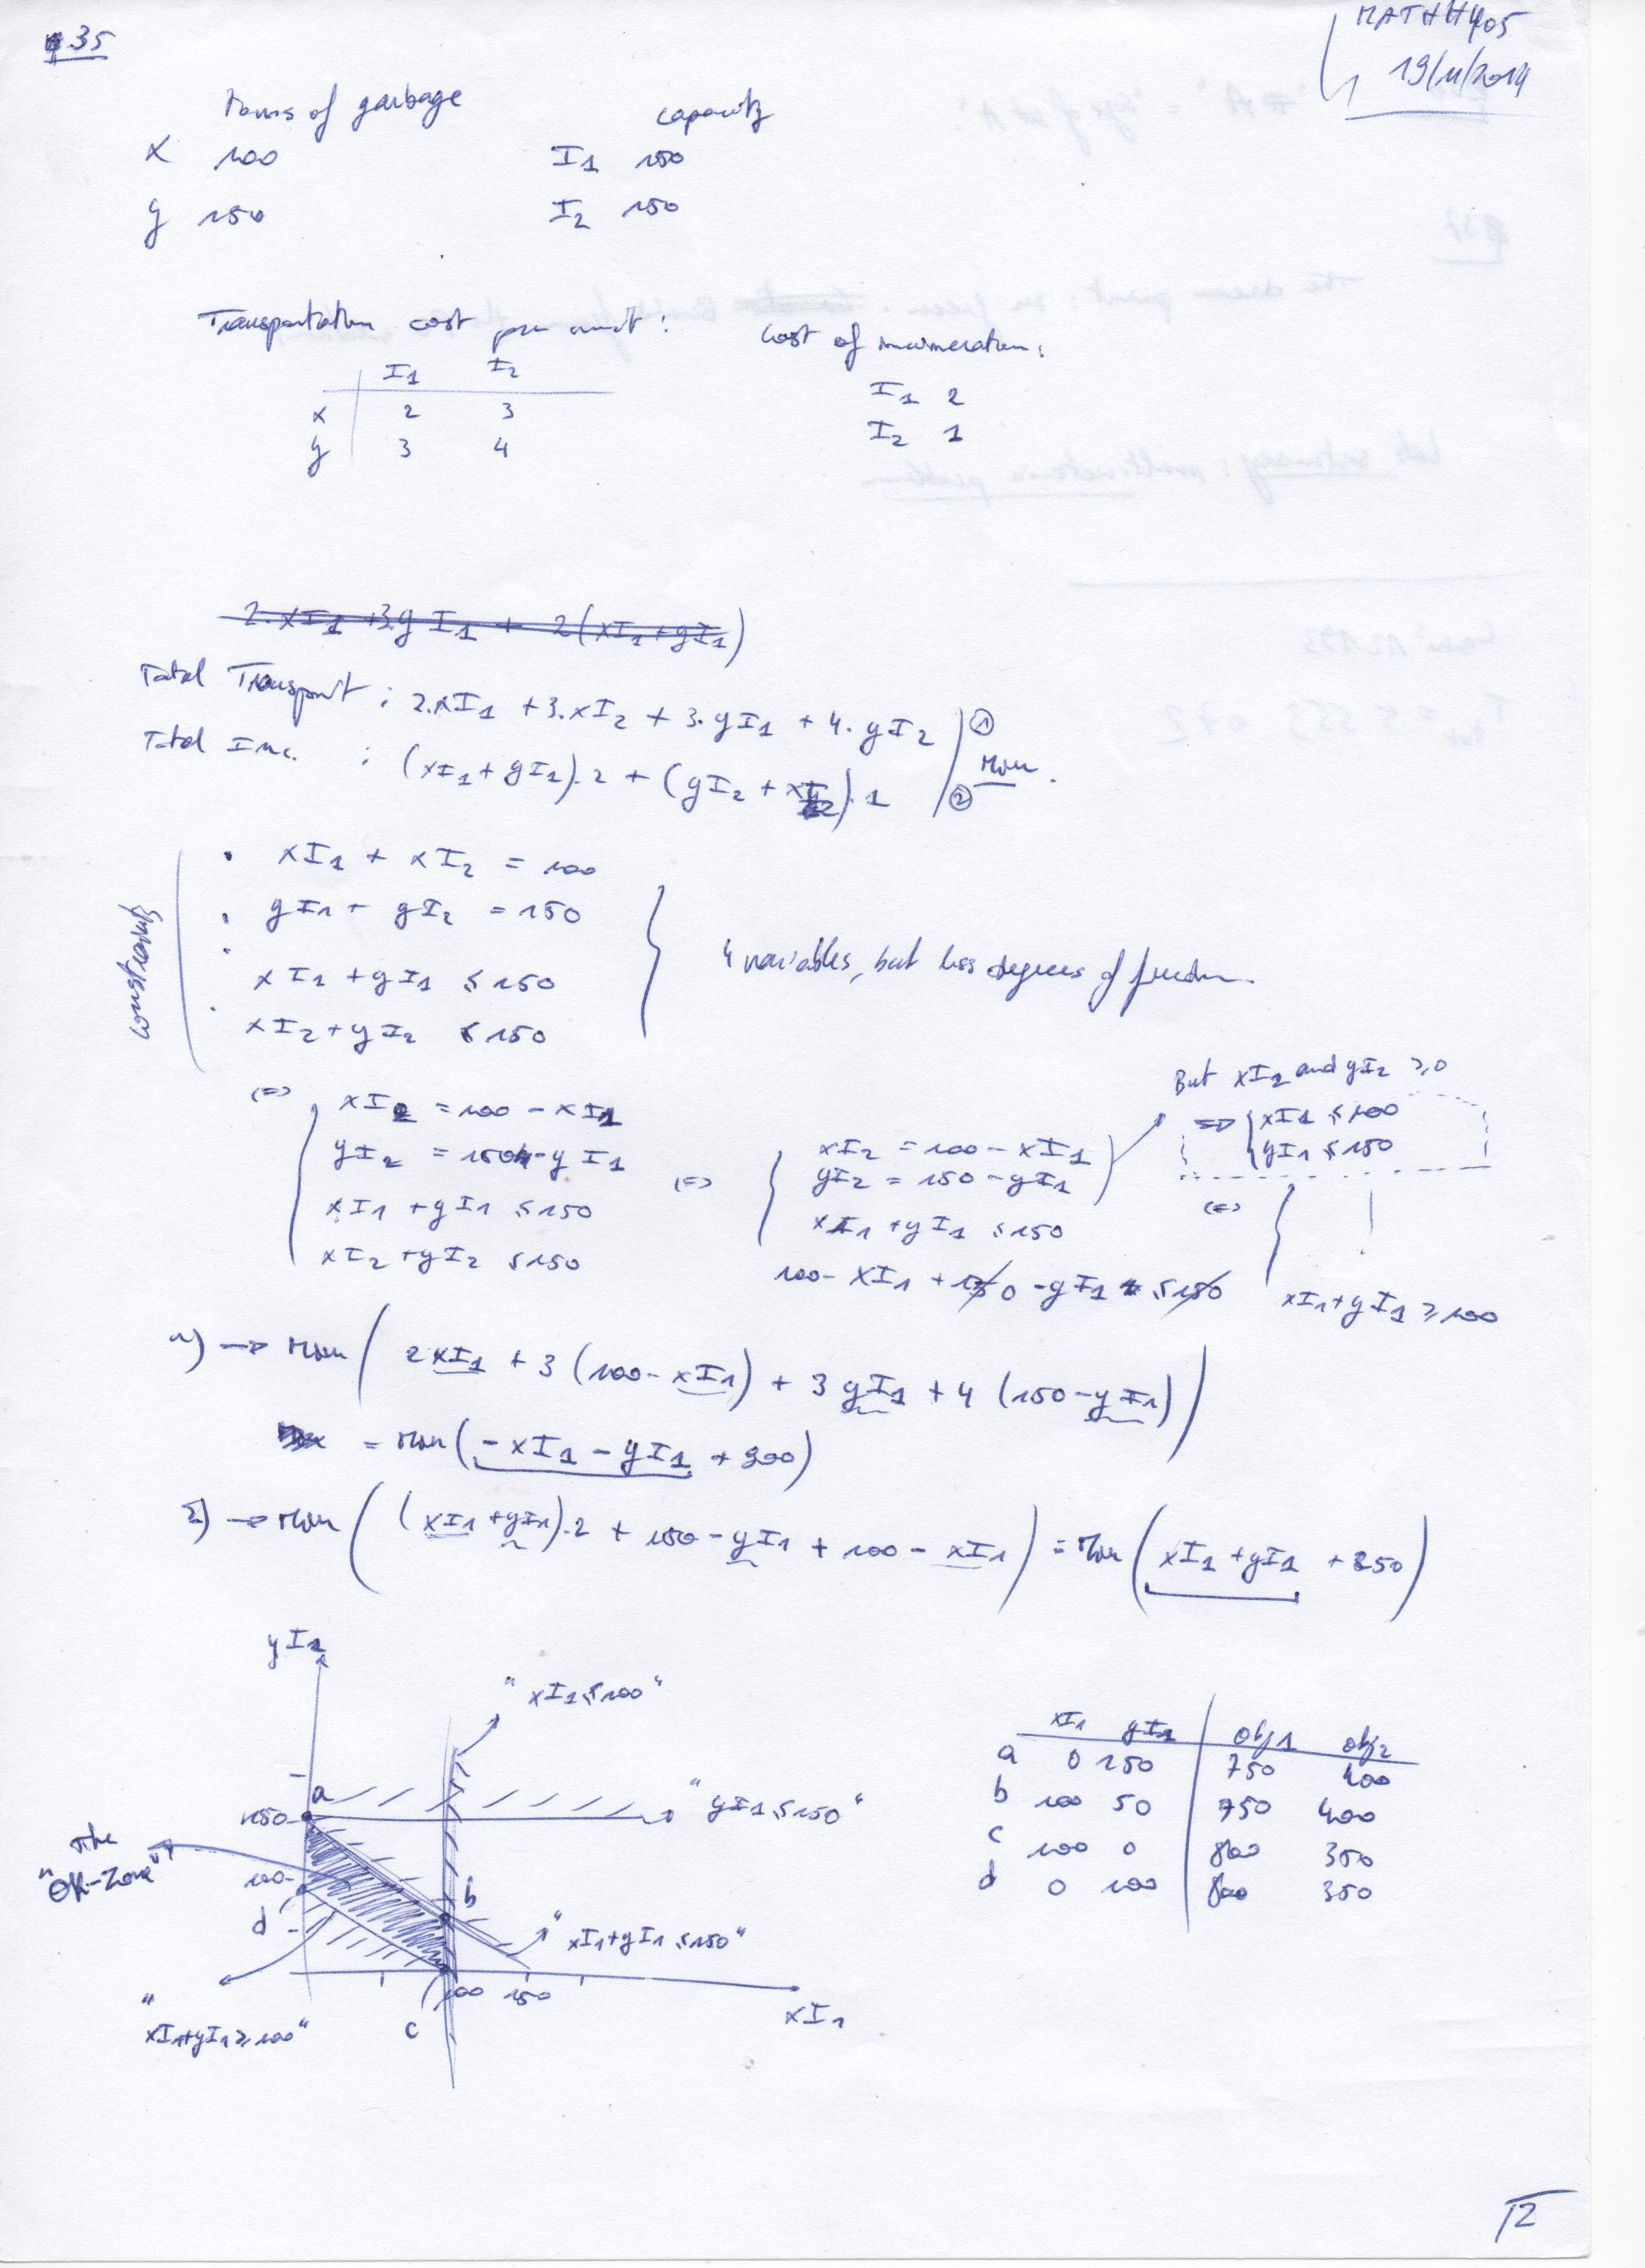 p.35
MATHH405
19/11/2014
Tons of garbage
capacity
x 100
I1 150
y 150
I2 150
Transportation cost per unit :
Cost of incineration :
I1 I2
x 2 3
y 3 4
I1 2
I2 1
2.xI1 + 3.yI1 + 2(xI1+yI1)
Total Transport : 2.xI1 + 3.xI2 + 3.yI1 + 4.yI2 ①
Total Inc. : (xI1+yI1).2 + (yI2+xI2).1 ②
Min.
constraints
• xI1 + xI2 = 100
• yI1 + yI2 = 150
• xI1 + yI1 ≤ 150
• xI2 + yI2 ≤ 150
4 variables, but less degrees of freedom.
<=>
xI2 = 100 - xI1
yI2 = 150 - yI1
xI1 + yI1 ≤ 150
xI2 + yI2 ≤ 150
<=>
xI2 = 100 - xI1
yI2 = 150 - yI1
xI1 + yI1 ≤ 150
100 - xI1 + 150 - yI1 ≤ 150
But xI2 and yI2 ≥ 0
=> xI1 ≤ 100
yI1 ≤ 150
<=>
xI1+yI1 ≥ 100
1) → Min ( 2xI1 + 3 (100 - xI1) + 3 yI1 + 4 (150 - yI1) )
= Min ( - xI1 - yI1 + 900)
2) → Min ( (xI1 + yI1).2 + 150 - yI1 + 100 - xI1 ) = Min ( xI1 + yI1 + 250 )
yI1
"xI1 ≤ 100"
a
150
"yI1 ≤ 150"
The
"OK-Zone"
100
b
d
"xI1+yI1 ≤ 150"
100 150
xI1
c
"xI1+yI1 ≥ 100"
xI1 yI1 obj1 obj2
a 0 150 750 400
b 100 50 750 400
c 100 0 800 350
d 0 100 800 350
12